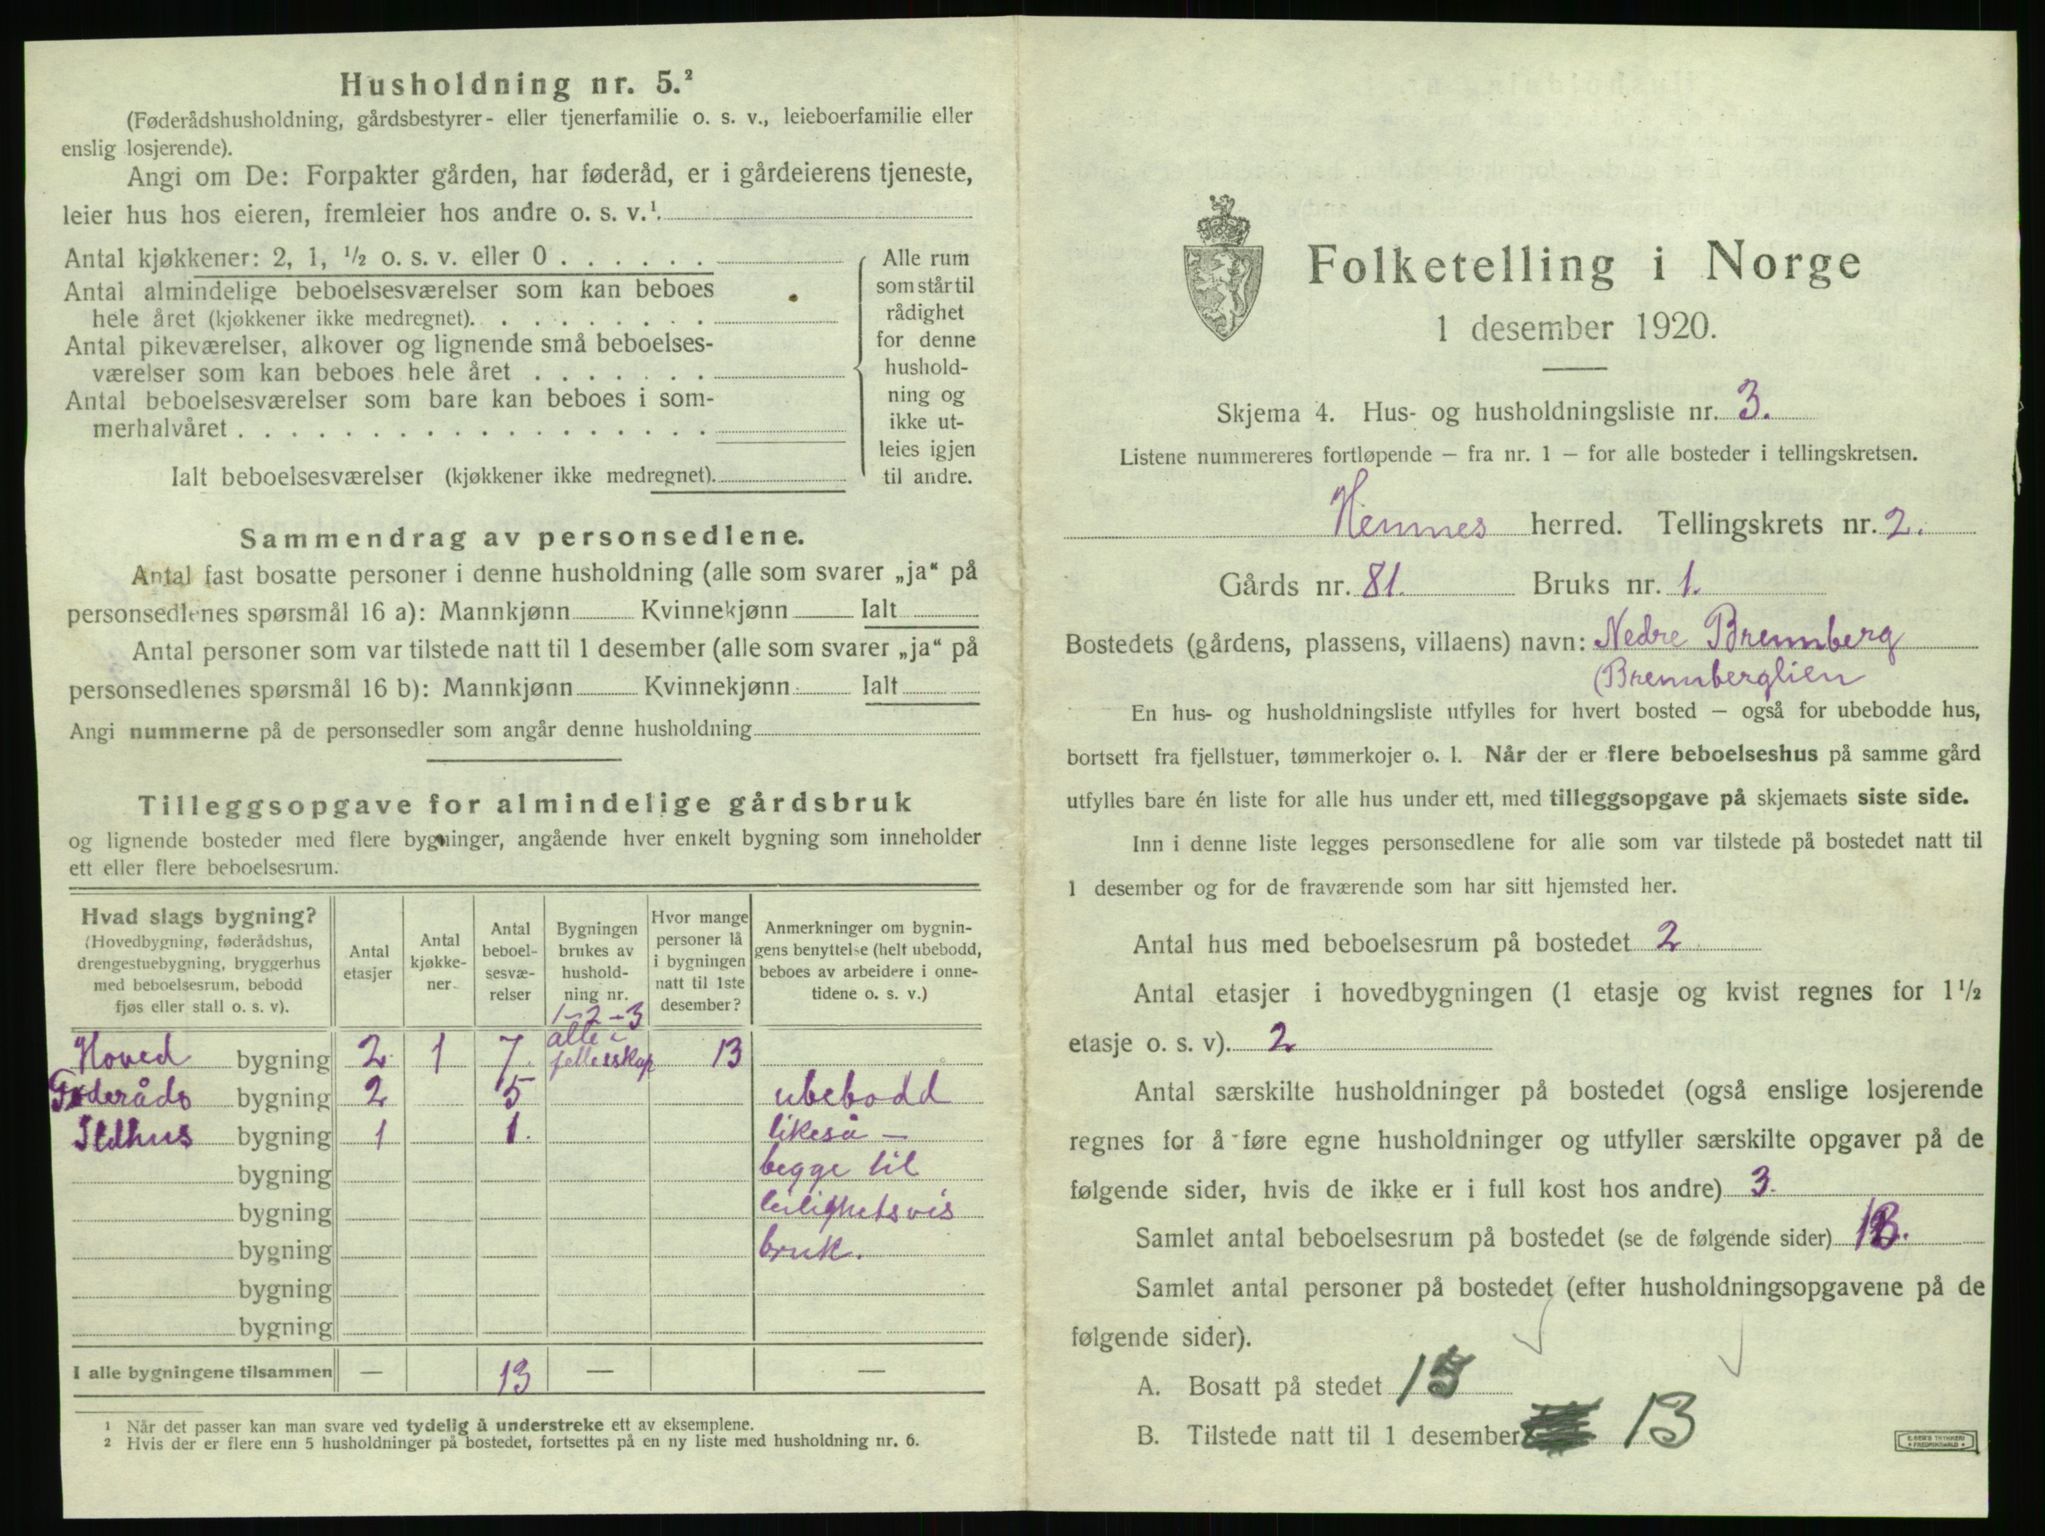 Husholdning nr. 5.²
(Føderådshusholdning, gårdsbestyrer- eller tjenerfamilie o. s. v., leieboerfamilie eller
enslig losjerende).
Angi om De: Forpakter gården, har føderåd, er i gårdeierens tjeneste,
leier hus hos eieren, fremleier hos andre o. s. v.¹
Antal kjøkkener: 2, 1, ½ o. s. v. eller 0 . . . . . .
Antal almindelige beboelsesværelser som kan beboes
hele året (kjøkkener ikke medregnet). . . . . . . . .
Antal pikeværelser, alkover og lignende små beboelses-
værelser som kan beboes hele året . . . . . . .
Antal beboelsesværelser som bare kan beboes i som-
merhalvåret . . . . . . . . . . . . . . . . . .
Ialt beboelsesværelser (kjøkkener ikke medregnet).
Alle rum
som står til
rådighet
for denne
hushold-
ning og
ikke ut-
leies igjen
til andre.
Sammendrag av personsedlene.
Antal fast bosatte personer i denne husholdning (alle som svarer „ja“ på
personsedlenes spørsmål 16 a): Mannkjønn Kvinnekjønn Ialt
Antal personer som var tilstede natt til 1 desember (alle som svarer „ja“ på
personsedlenes spørsmål 16 b): Mannkjønn Kvinnekjønn Ialt
Angi nummerne på de personsedler som angår denne husholdning
Tilleggsopgave for almindelige gårdsbruk
og lignende bosteder med flere bygninger, angående hver enkelt bygning som inneholder
ett eller flere beboelsesrum.
Hvad slags bygning?
(Hovedbygning, føderådshus,
drengestuebygning, bryggerhus
med beboelsesrum, bebodd
fjøs eller stall o. s. v).
Antal
etasjer
Antal
kjøkke-
ner
Antal
beboel-
sesvæ-
relser
Bygningen
brukes av
hushold-
ning nr.
Hvor mange
personer lå
i bygningen
natt til 1ste
desember?
Anmerkninger om bygnin-
gens benyttelse (helt ubebodd,
beboes av arbeidere i onne-
tidene o. s. v.)
1-2-3
alle i
Hoved bygning 2 1 7. fellesskap 13
Føderåds bygning 2 5 ubebodd
Ildhus bygning 1 1. likeså —
bygning begge til
bygning leilighetsvis
bygning bruk.
bygning
bygning
I alle bygningene tilsammen — 13 — —
¹ Når det passer kan man svare ved tydelig å understreke ett av eksemplene.
² Hvis der er flere enn 5 husholdninger på bostedet, fortsettes på en ny liste med husholdning nr. 6.
Folketelling i Norge
1 desember 1920.
Skjema 4. Hus- og husholdningsliste nr. 3.
Listene nummereres fortløpende — fra nr. 1 — for alle bosteder i tellingskretsen.
Hemnes herred. Tellingskrets nr. 2.
Gårds nr. 81. Bruks nr. 1.
Bostedets (gårdens, plassens, villaens) navn: Nedre Bremnberg
(Bremnberglien
En hus- og husholdningsliste utfylles for hvert bosted — også for ubebodde hus,
bortsett fra fjellstuer, tømmerkojer o. l. Når der er flere beboelseshus på samme gård
utfylles bare én liste for alle hus under ett, med tilleggsopgave på skjemaets siste side.
Inn i denne liste legges personsedlene for alle som var tilstede på bostedet natt til
1 desember og for de fraværende som har sitt hjemsted her.
Antal hus med beboelsesrum på bostedet 2
Antal etasjer i hovedbygningen (1 etasje og kvist regnes for 1½
etasje o. s. v). 2
Antal særskilte husholdninger på bostedet (også enslige losjerende
regnes for å føre egne husholdninger og utfyller særskilte opgaver på de
følgende sider, hvis de ikke er i full kost hos andre) 3.
Samlet antal beboelsesrum på bostedet (se de følgende sider) 13.
Samlet antal personer på bostedet (efter husholdningsopgavene på de
følgende sider).
A. Bosatt på stedet 15
B. Tilstede natt til 1 desember 13